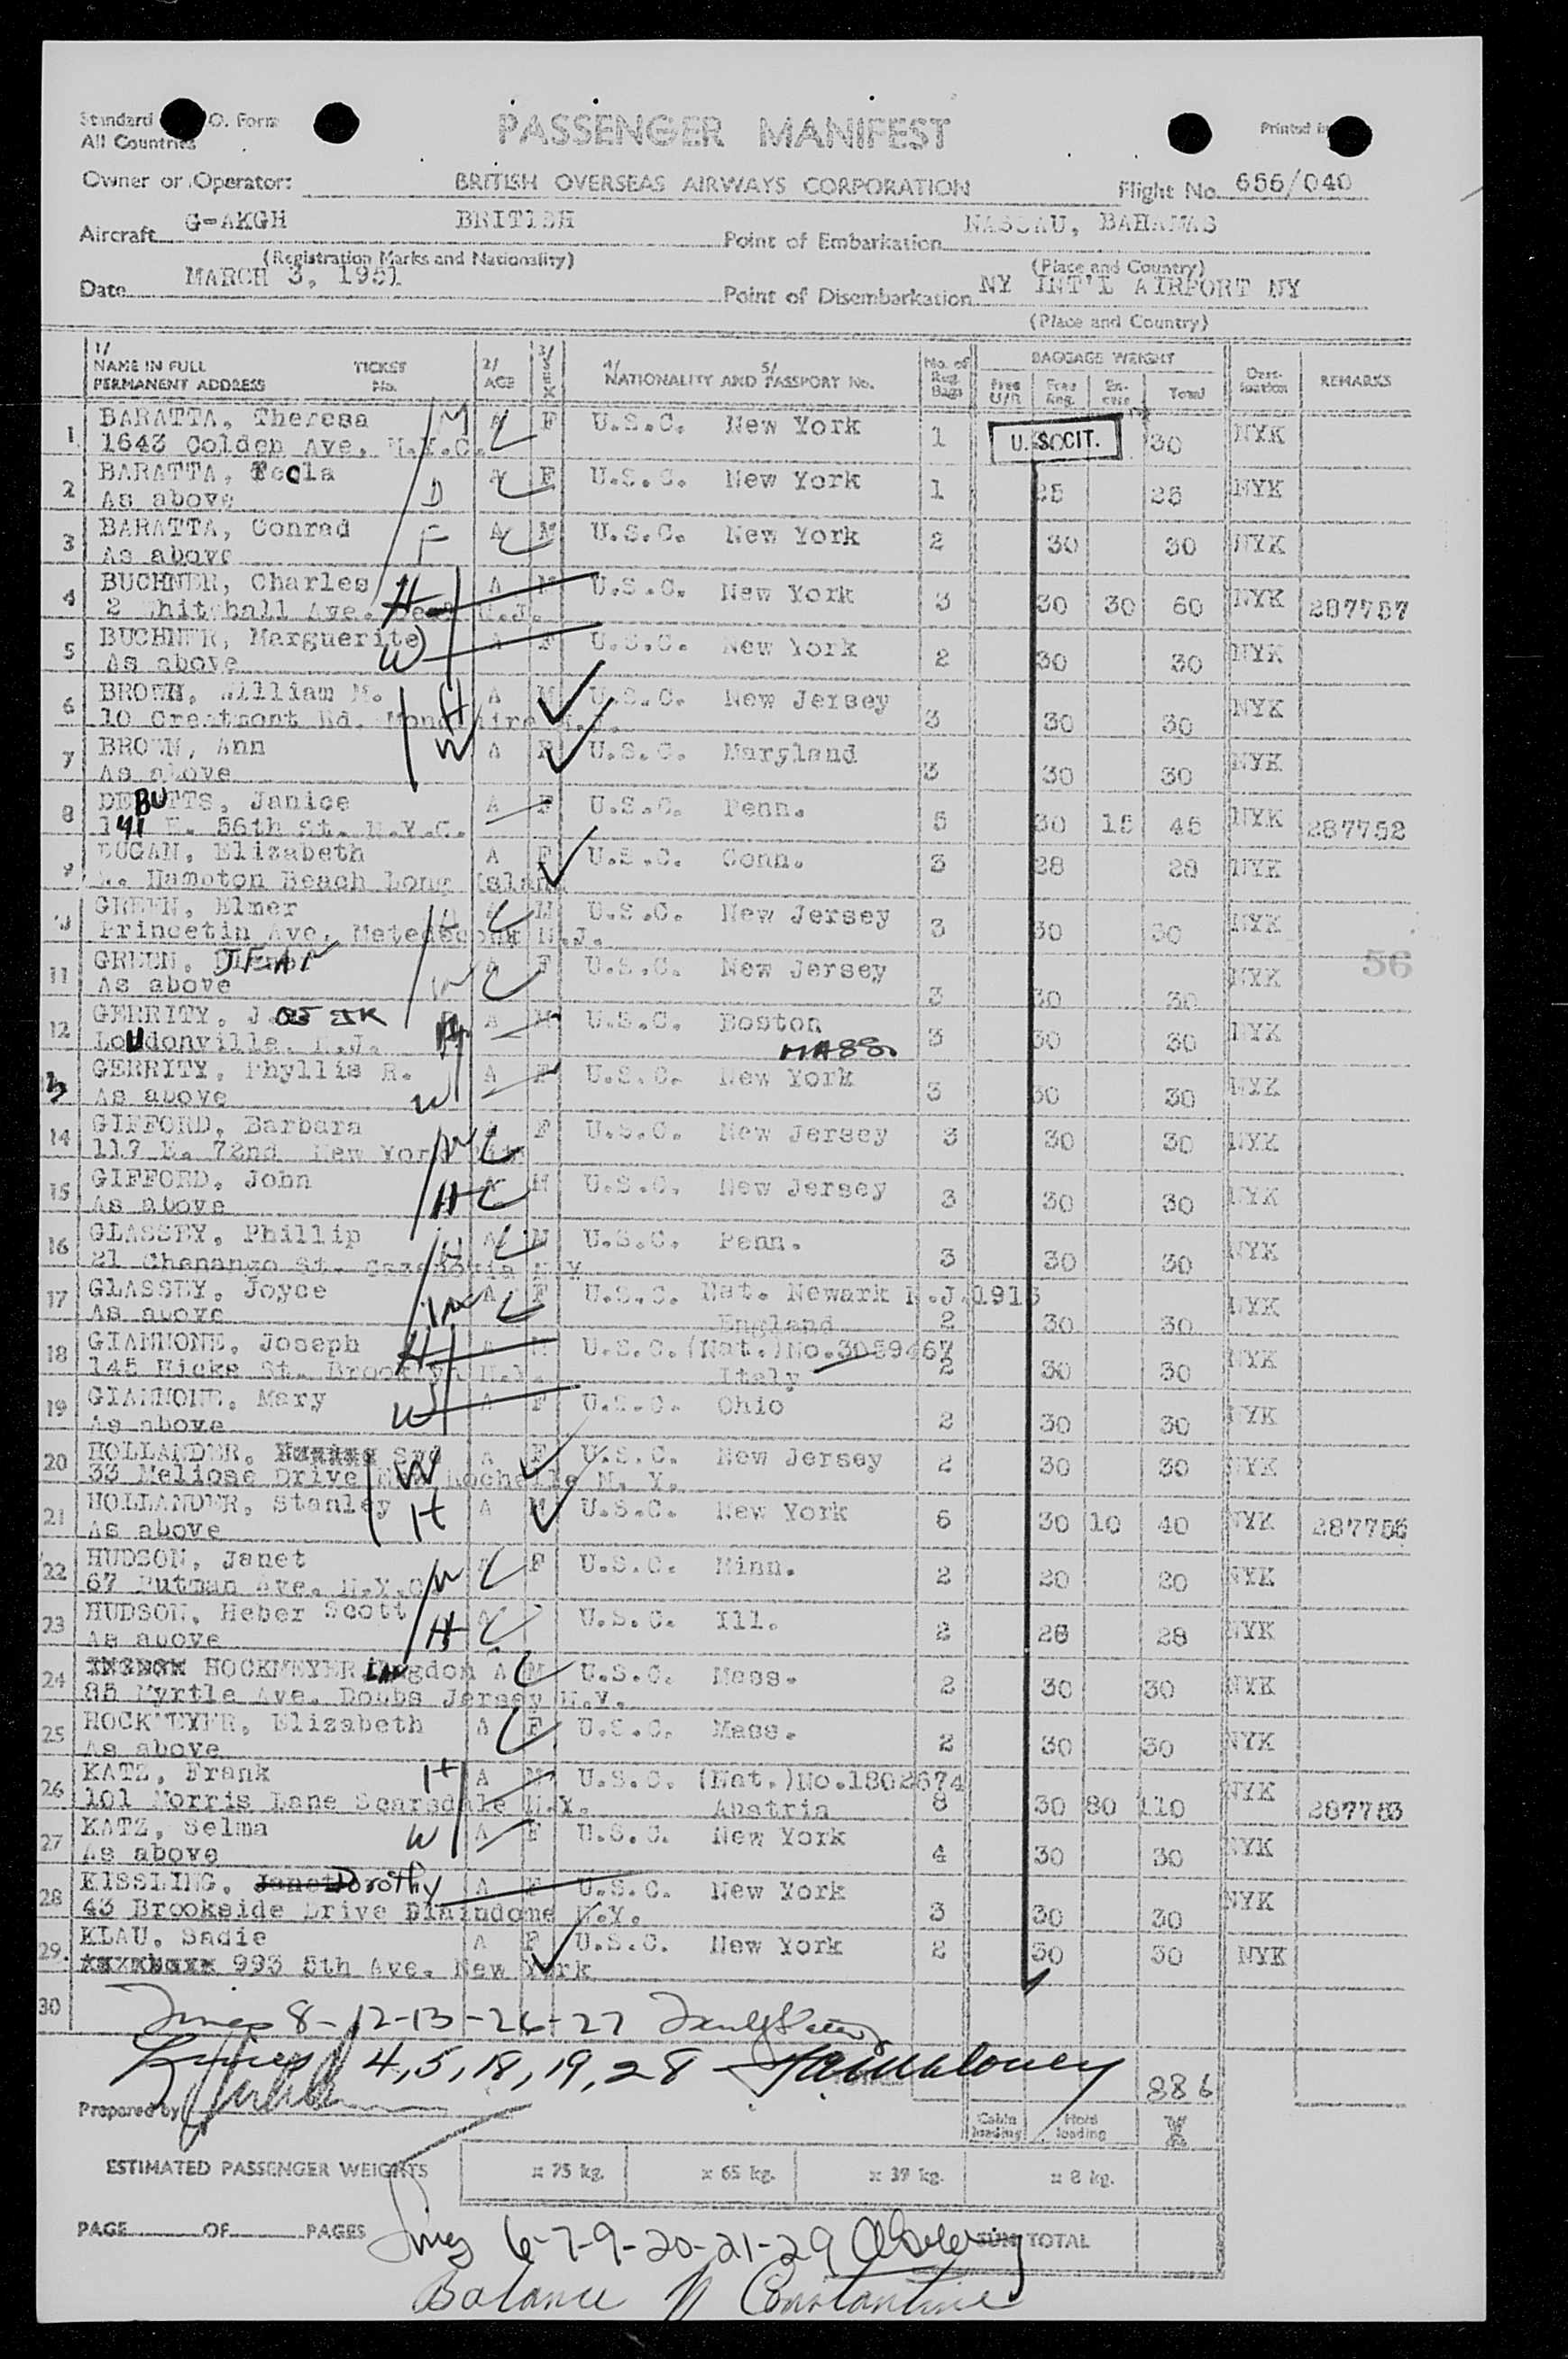 Standard O. Form
All Countries
PASSENGER MANIFEST
Printed in
Owner or Operator: BRITISH OVERSEAS AIRWAYS CORPORATION Flight No. 656/040
Aircraft G-AKGH BRITISH Point of Embarkation NASSAU, BAHAMAS
(Registration Marks and Nationality) (Place and Country)
Date MARCH 3, 1951 Point of Disembarkation NY INT'L AIRPORT NY
(Place and Country)
1/ NAME IN FULL TICKET 2/ AGE 3/ SEX 4/ NATIONALITY AND 5/ PASSPORT No. No. of Reg. Bags BAGGAGE WEIGHT Destination REMARKS
PERMANENT ADDRESS No. Free U/R Free Reg. Excess Total
1 BARATTA, Theresa M A F U.S.C. New York 1 U.S. CIT. 30 NYK
1643 Colden Ave. N.Y.C.
2 BARATTA, Tecla D A F U.S.C. New York 1 25 25 NYK
As above
3 BARATTA, Conrad F A M U.S.C. New York 2 30 30 NYK
As above
4 BUCHNER, Charles H A M U.S.C. New York 3 30 30 60 NYK 287757
2 Ave. N.J.
5 BUCHNER, Marguerite W A F U.S.C. New York 2 30 30 NYK
As above
6 BROWN, William M. H A M U.S.C. New Jersey 3 30 30 NYK
10 Crestmont Rd. N.J.
7 BROWN, Ann W A F U.S.C. Maryland 3 30 30 NYK
As above
8 DEBUTTS, Janice A F U.S.C. Penn. 5 30 15 45 NYK 287752
141 E. 56th St. N.Y.C.
9 DUGAN, Elizabeth A F U.S.C. Conn. 3 28 28 NYK
W. Hampton Beach Long Island
GREEN, Elmer H A M U.S.C. New Jersey 3 30 30 NYK
Princetin Ave. Metedeconk N.J.
11 GREEN, JEAN W A F U.S.C. New Jersey 3 30 30 NYK 56
As above
12 GERRITY, J. H A M U.S.C. Boston 3 30 30 NYK
Loudonville, N.J. MASS.
13 GERRITY, Phyllis R. W A F U.S.C. New York 3 30 30 NYK
As above
14 GIFFORD, Barbara W F U.S.C. New Jersey 3 30 30 NYK
117 E. 72nd New York
15 GIFFORD, John H A M U.S.C. New Jersey 3 30 30 NYK
As above
16 GLASSEY, Phillip H A M U.S.C. Penn. 3 30 30 NYK
21 Chenango St. Cazenovia N Y
17 GLASSEY, Joyce W A F U.S.C. Nat. Newark N.J. 1915 NYK
As above England 2 30 30
18 GIANNONE, Joseph H A M U.S.C. (Nat.)No.3059467 NYK
145 Hicks St. Brooklyn N.Y. Italy 2 30 30
19 GIANNONE, Mary W A F U.S.C. Ohio 2 30 30 NYK
As above
20 HOLLANDER, W A F U.S.C. New Jersey 2 30 30 NYK
33 Meliose Drive New Rochelle N. Y.
21 HOLLANDER, Stanley H A M U.S.C. New York 6 30 10 40 NYK 287756
As above
22 HUDSON, Janet W A F U.S.C. Minn. 2 20 20 NYK
67 Putman Ave. N.Y.C.
23 HUDSON, Heber Scott H A U.S.C. Ill. 2 28 28 NYK
As above
24 HOCKMEYER, Langdon A M U.S.C. Mass. 2 30 30 NYK
85 Myrtle Ave. Dobbs Jersey N.Y.
25 HOCKMEYER, Elizabeth A F U.S.C. Mass. 2 30 30 NYK
As above
26 KATZ, Frank H A M U.S.C. (Nat.)No.1802674 NYK
101 Morris Lane Scarsdale N.Y. Austria 8 30 80 110 287753
27 KATZ, Selma W A F U.S.C. New York 4 30 30 NYK
As above
28 KISSLING, Janet Dorothy A F U.S.C. New York 3 30 30 NYK
43 Brookside Drive Plaindome N.Y.
29. KLAU, Sadie A F U.S.C. New York 2 30 30 NYK
993 5th Ave. New York
30 Lines 8-12-13-26-27
Lines 4,5,18,19,28
886
Prepared by
Cabin loading Hold loading
ESTIMATED PASSENGER WEIGHTS x 75 kg. x 65 kg. x 39 kg. x 8 kg.
PAGE OF PAGES SUM TOTAL
Lines 6-7-9-20-21-29
Balance Constantine